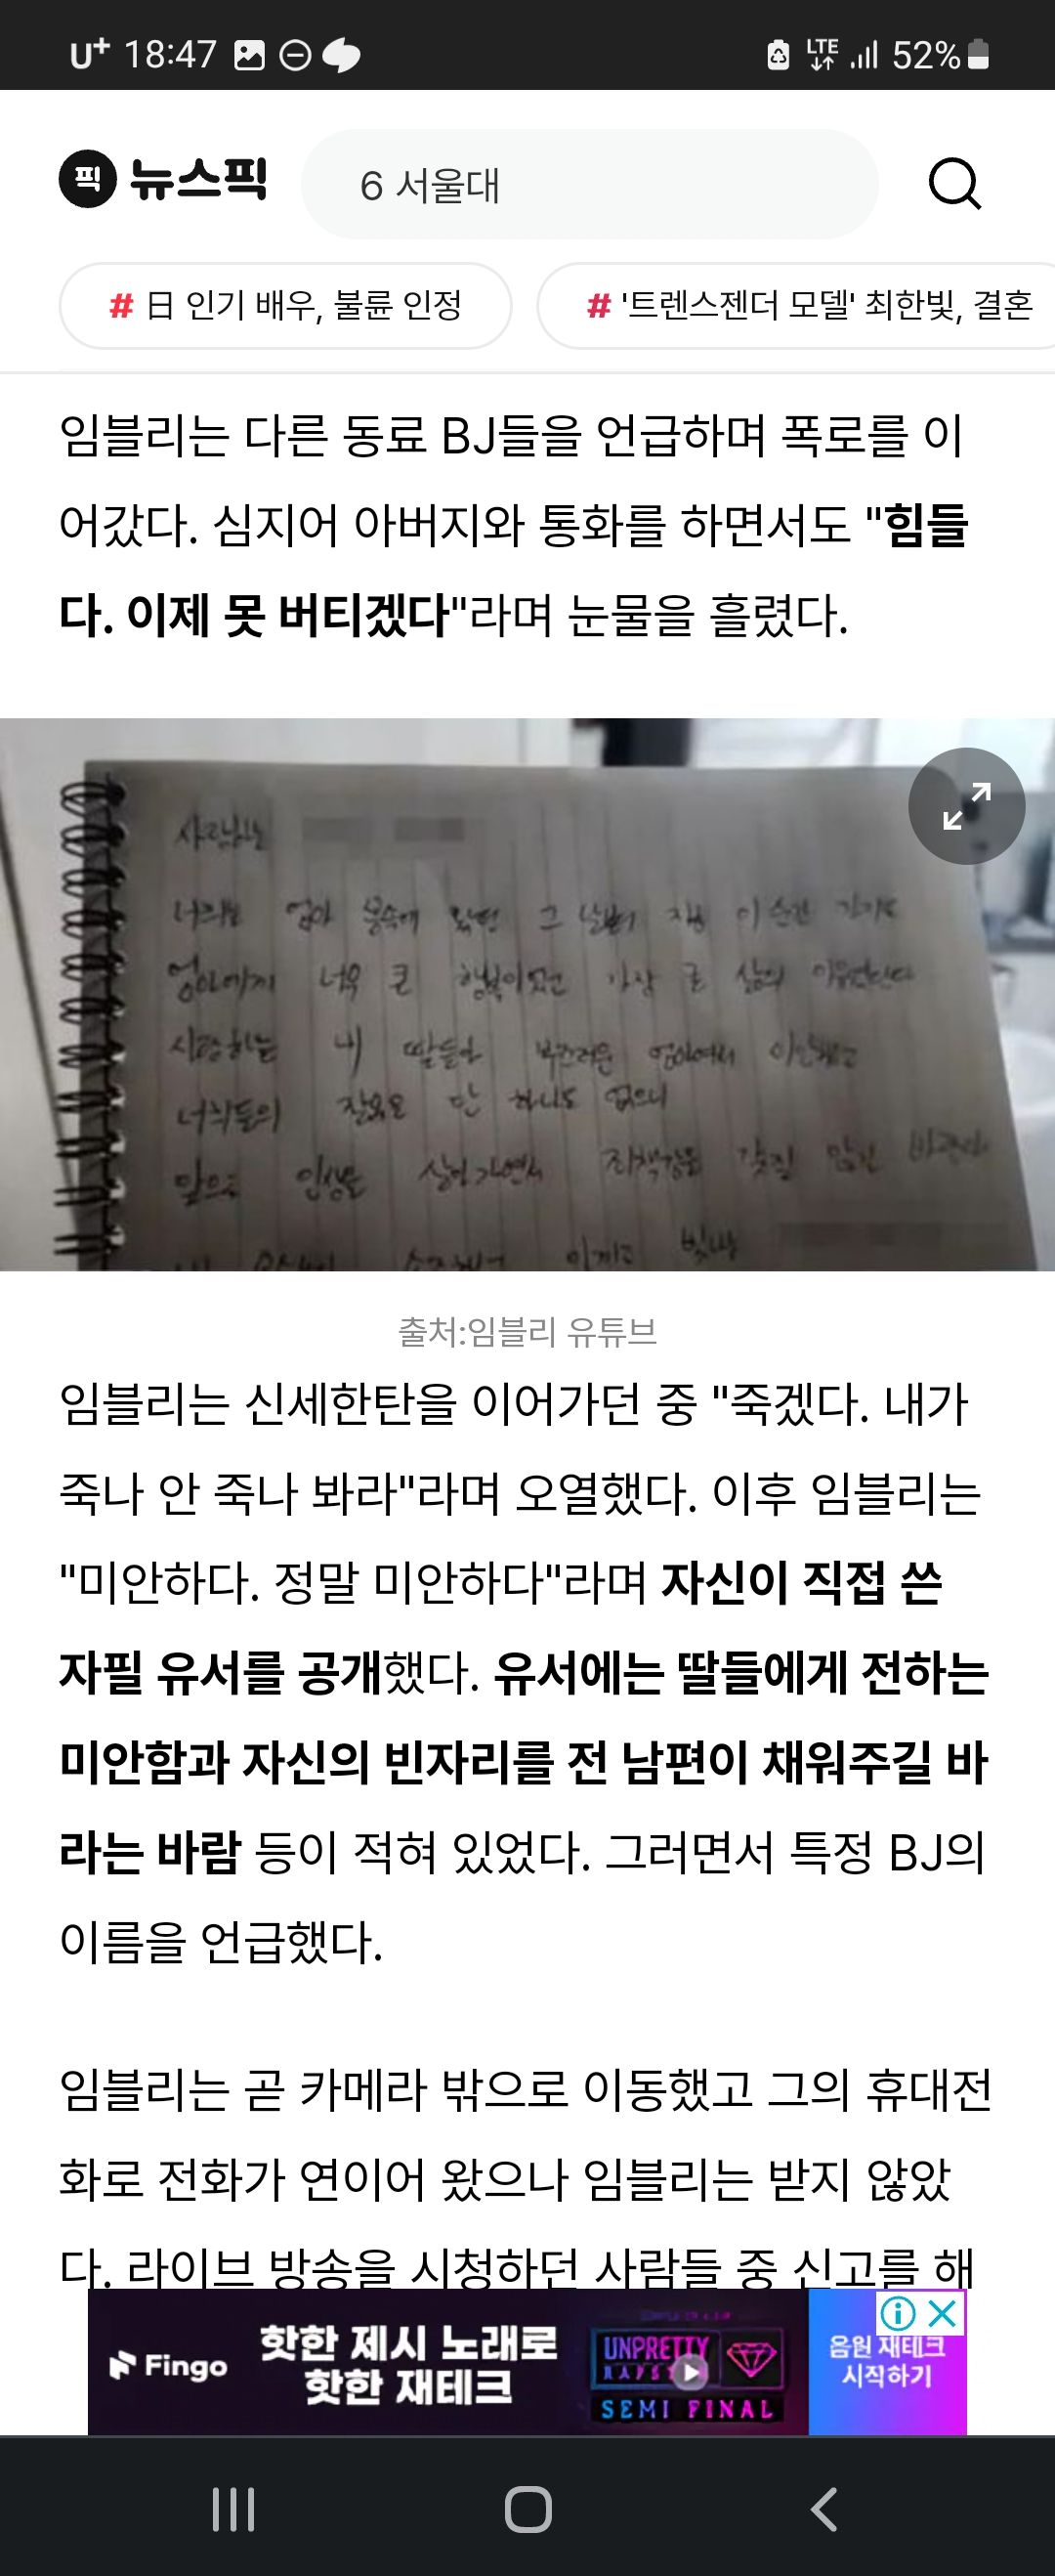 U+ 18:47 LTE 52%
픽 뉴스픽 6 서울대
# 日 인기 배우, 불륜 인정 # '트렌스젠더 모델' 최한빛, 결혼
임블리는 다른 동료 BJ들을 언급하며 폭로를 이
어갔다. 심지어 아버지와 통화를 하면서도 "힘들
다. 이제 못 버티겠다"라며 눈물을 흘렸다.
너희는 엄마 뱃속에 그 날부터 지금 이 순간 까지도
엄마에게 너무 큰 행복이었고 가장 큰 삶의
사랑하는 내 딸들아 부끄러운 엄마여서 미안하고
너희들의 잘못은 단 하나도 없으니
앞으로 인생을 살아가면서 자책감을 갖질 않길 바란다
출처:임블리 유튜브
임블리는 신세한탄을 이어가던 중 "죽겠다. 내가
죽나 안 죽나 봐라"라며 오열했다. 이후 임블리는
"미안하다. 정말 미안하다"라며 자신이 직접 쓴
자필 유서를 공개했다. 유서에는 딸들에게 전하는
미안함과 자신의 빈자리를 전 남편이 채워주길 바
라는 바람 등이 적혀 있었다. 그러면서 특정 BJ의
이름을 언급했다.
임블리는 곧 카메라 밖으로 이동했고 그의 휴대전
화로 전화가 연이어 왔으나 임블리는 받지 않았
다. 라이브 방송을 시청하던 사람들 중 신고를 해
Fingo 핫한 제시 노래로 UNPRETTY 음원 재테크
핫한 재테크 SEMI FINAL 시작하기